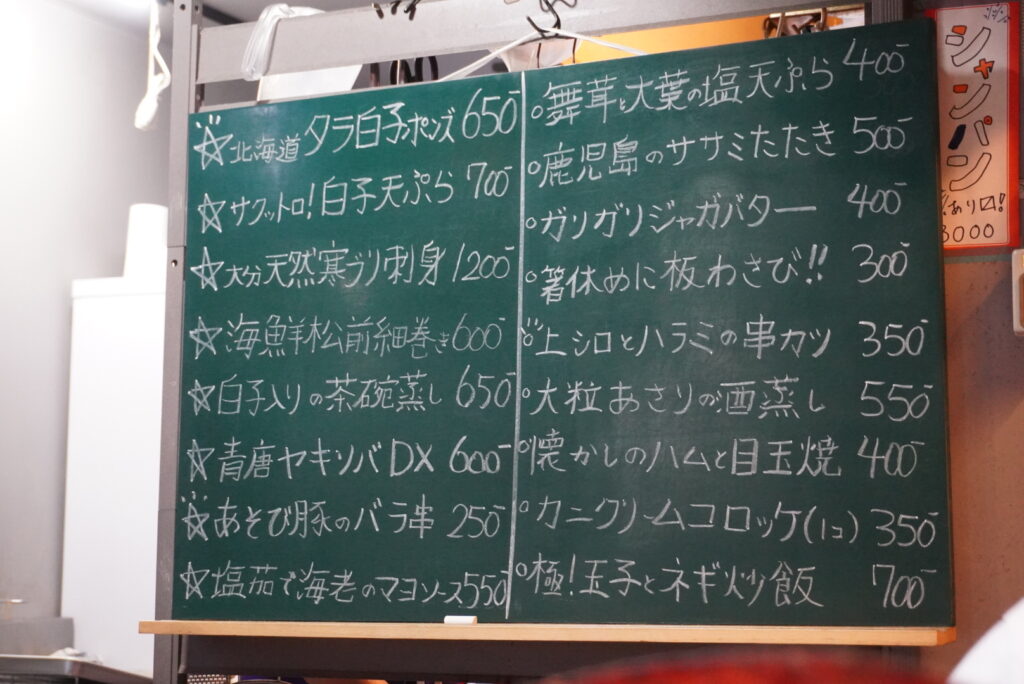 ☆北海道タラ白子ポンズ 650-
☆サクットロ!白子天ぷら 700-
☆大分天然寒ブリ刺身 1200-
☆海鮮松前細巻き 600-
☆白子入りの茶碗蒸し 650-
☆青唐ヤキソバDX 600-
☆あそび豚のバラ串 250-
☆塩茄で海老のマヨソース 550-
○舞茸と大葉の塩天ぷら 400-
○鹿児島のササミたたき 500-
○ガリガリジャガバター 400-
○箸休めに板わさび!! 300-
○上シロとハラミの串カツ 350-
○大粒あさりの酒蒸し 550-
○懐かしのハムと目玉焼 400-
○カニクリームコロッケ(1コ) 350-
○極!玉子とネギ炒飯 700-
シャンパン
あり〼!
3000